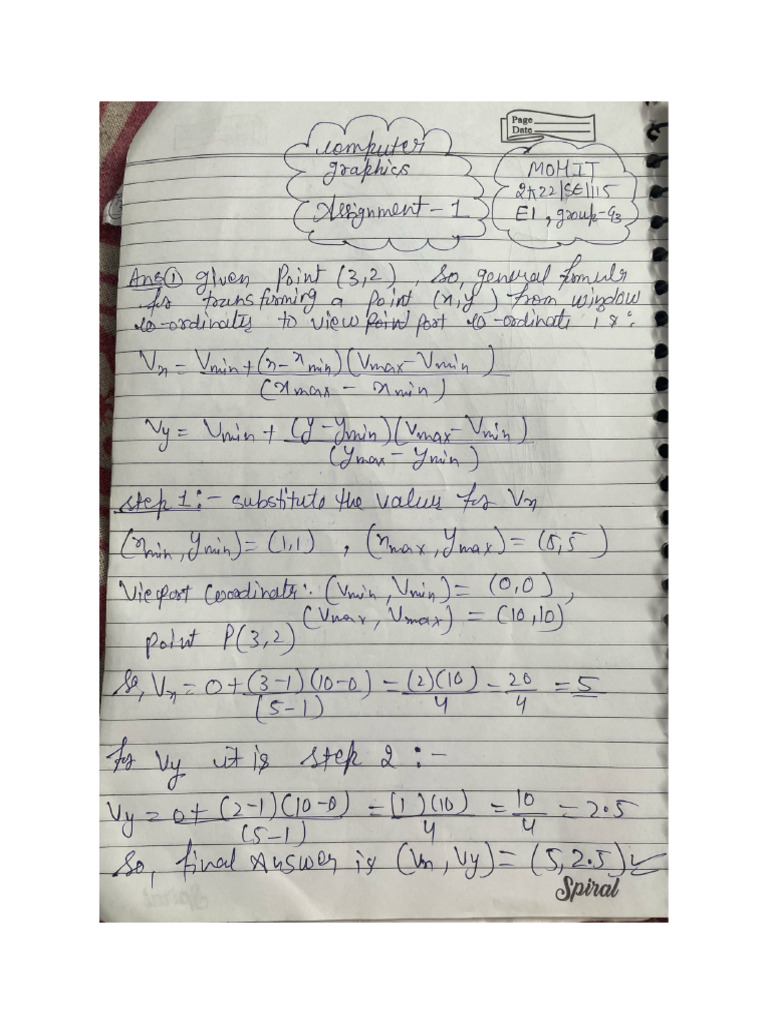 Page
Date
computer
graphics
Assignment - 1
MOHIT
2K22/SE/115
E1, group-G3
Ans ① given Point (3,2), So, general formula
for transfirming a point (x,y) from window
co-ordinates to view point port co-ordinate is:
Vx = Vmin + (x - xmin)(Vmax - Vmin)
(xmax - xmin)
Vy = Vmin + (y - ymin)(Vmax - Vmin)
(ymax - ymin)
step 1:- substitute the values for Vx
(xmin, ymin) = (1,1), (xmax, ymax) = (5,5)
Viewport coordinate: (Vmin, Vmin) = (0,0),
(Vmax, Vmax) = (10,10)
point P(3,2)
So, Vx = 0 + (3-1)(10-0) = (2)(10) = 20 = 5
(5-1) 4 4
for Vy it is step 2 :-
Vy = 0 + (2-1)(10-0) = (1)(10) = 10 = 2.5
(5-1) 4 4
So, final Answer is (Vx, Vy) = (5, 2.5)
Spiral